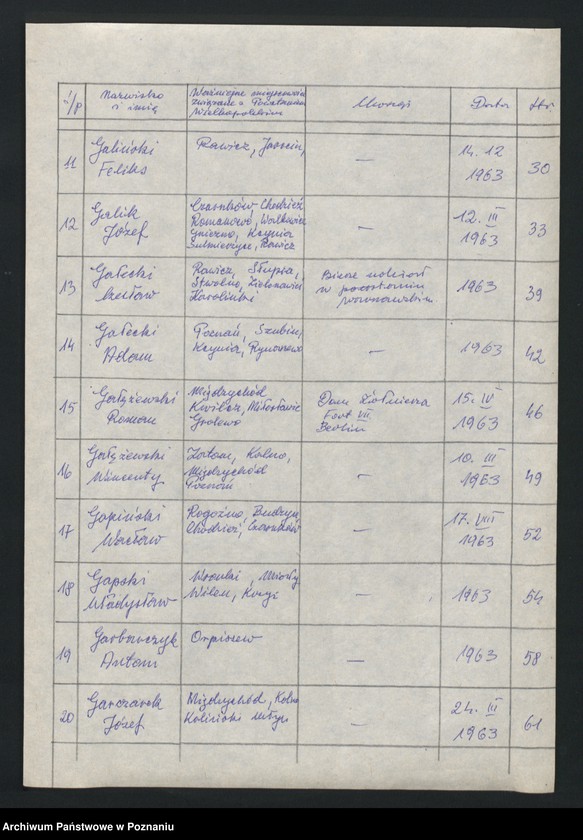 l/p Nazwisko i imię Ważniejsze miejscowości związane z Powstaniem Wielkopolskim Uwagi Data Str.
11 Galiński Feliks Rawicz, Jarocin, — 14. 12 1963 30
12 Galik Józef Czarnków Chodzież Romanowo, Walkowice Gniezno, Kcynia Sulmierzyce, Rawicz — 12. III 1963 33
13 Gałecki Czesław Rawicz, Słupia, Stwolno, Zielonawieś Karolinki 1963 39
14 Gałecki Adam Poznań, Szubin, Kcynia, Rynarzewo — 1963 42
15 Gałężewski Roman Międzychód Kwilcz, Miłosławie Grolewo Dom Żołnierza Fort VII Berlin 15. IV 1963 46
16 Gałężewski Wincenty Kolno, Międzychód Poznań — 10. III 1963 49
17 Gapiński Wacław Rogoźno, Budzyń, Chodzież, Czarnków — 17. VIII 1963 52
18 Gapski Władysław Wronki, Miały Wileń, — 1963 54
19 Garbarczyk Antoni Orpiszew — 1963 58
20 Garczarek Józef Międzychód, Kolno Koliński Młyn — 24. III 1963 61
Archiwum Państwowe w Poznaniu